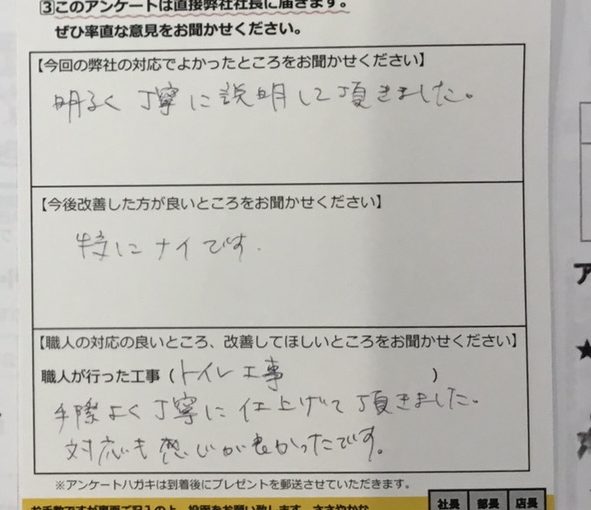 ③このアンケートは直接弊社社長に届きます。
ぜひ率直な意見をお聞かせください。
【今回の弊社の対応でよかったところをお聞かせください】
明るく丁寧に説明して頂きました。
【今後改善した方が良いところをお聞かせください】
特にナイです.
【職人の対応の良いところ、改善してほしいところをお聞かせください】
職人が行った工事(トイレ工事)
手際よく丁寧に仕上げて頂きました。
対応も感じが良かったです。
※アンケートハガキは到着後にプレゼントを郵送させていただきます。
社長 部長 店長